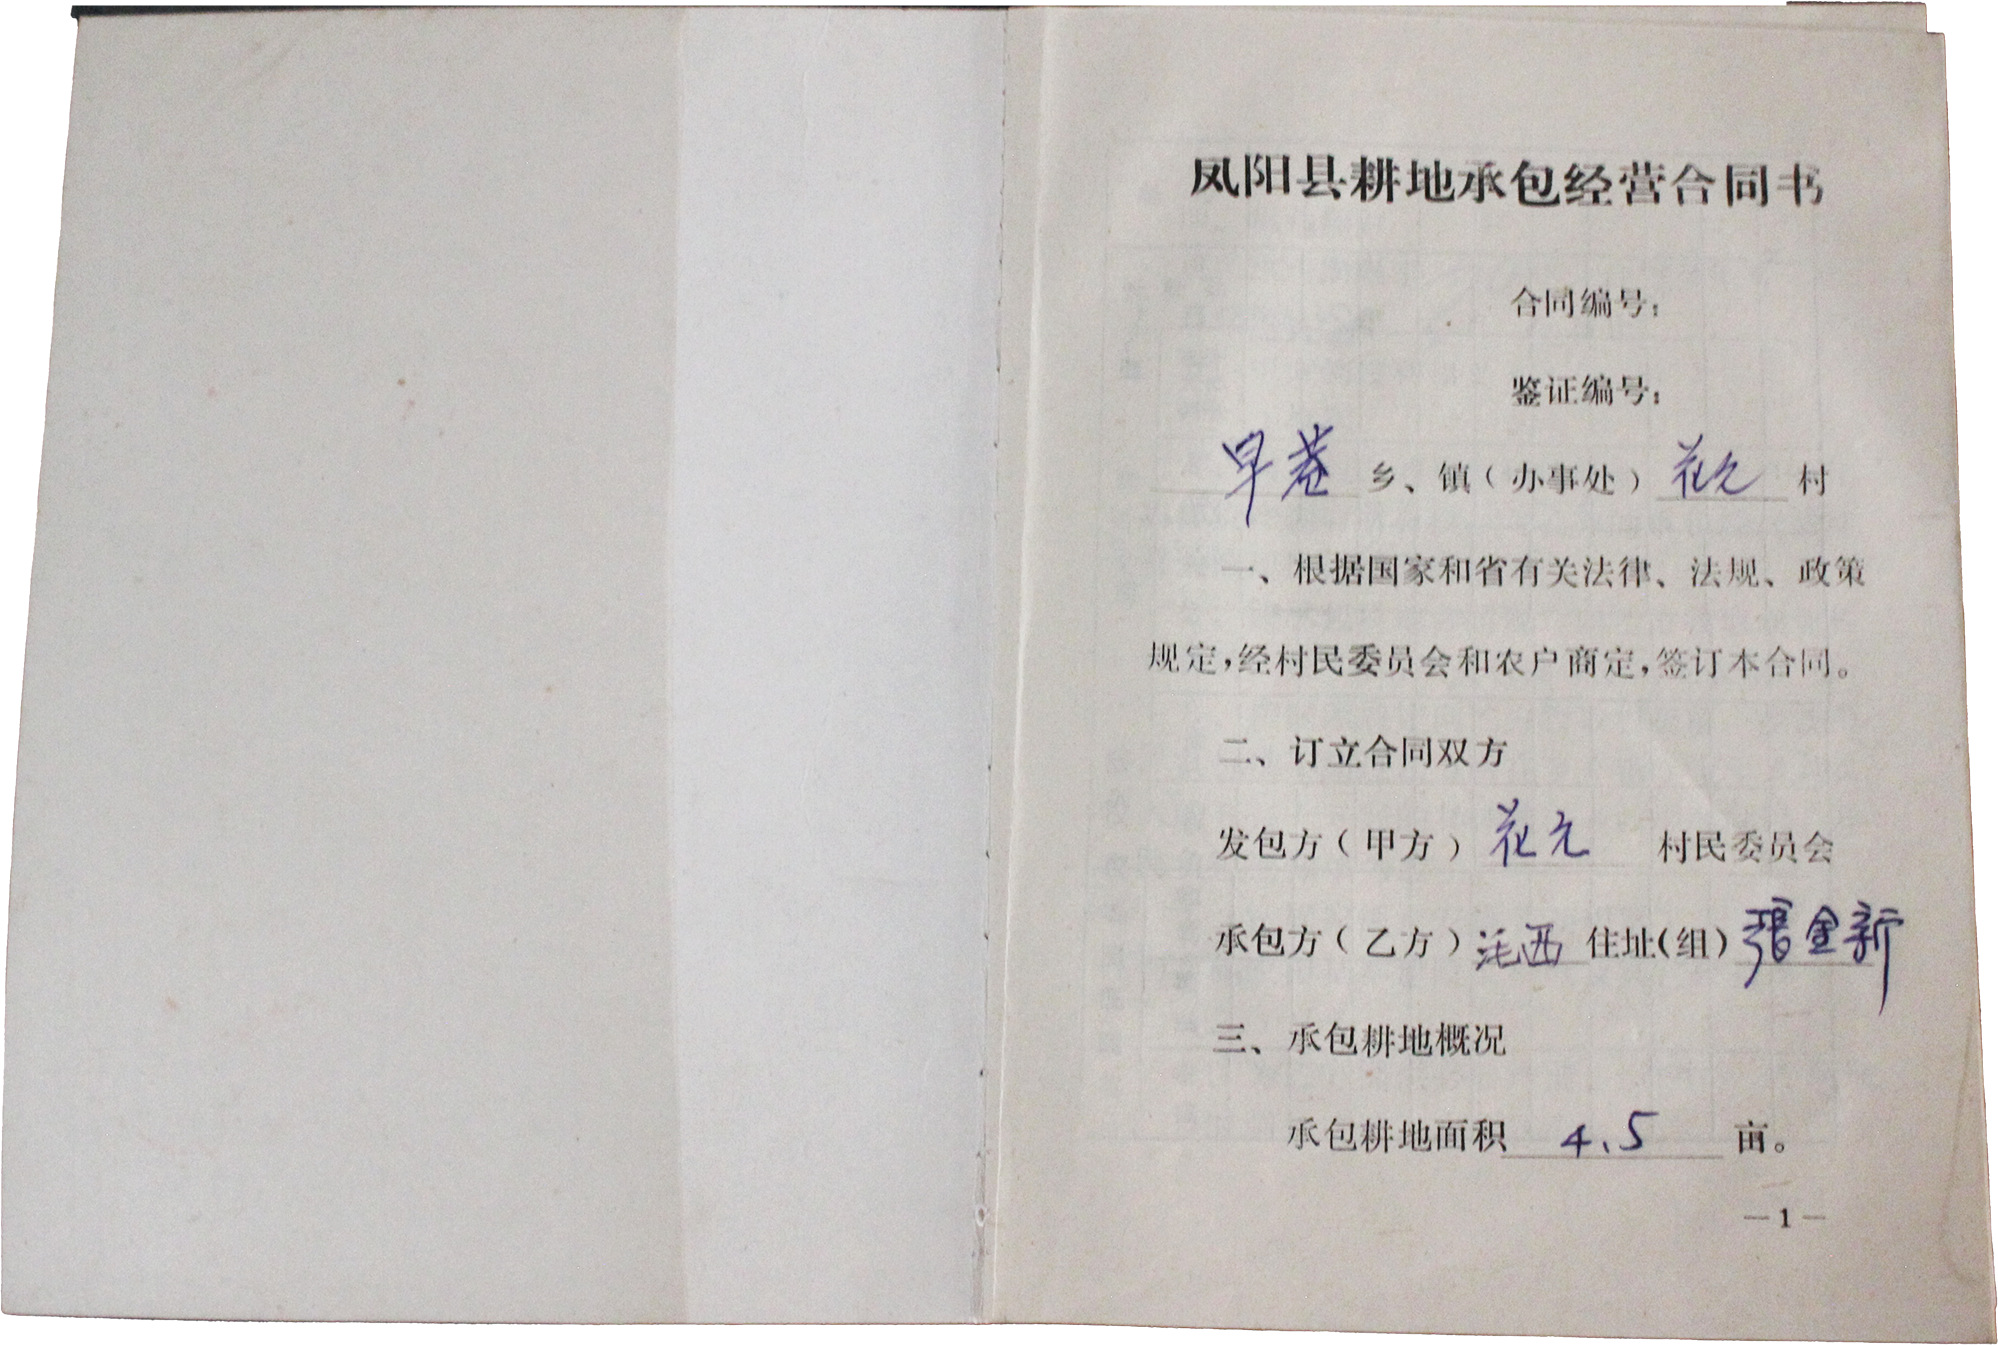 凤阳县耕地承包经营合同书
合同编号：
鉴证编号：
早巷 乡、镇（办事处）花元 村
一、根据国家和省有关法律、法规、政策
规定，经村民委员会和农户商定，签订本合同。
二、订立合同双方
发包方（甲方）花元 村民委员会
承包方（乙方）西 住址（组）張金新
三、承包耕地概况
承包耕地面积 4.5 亩。
—1—